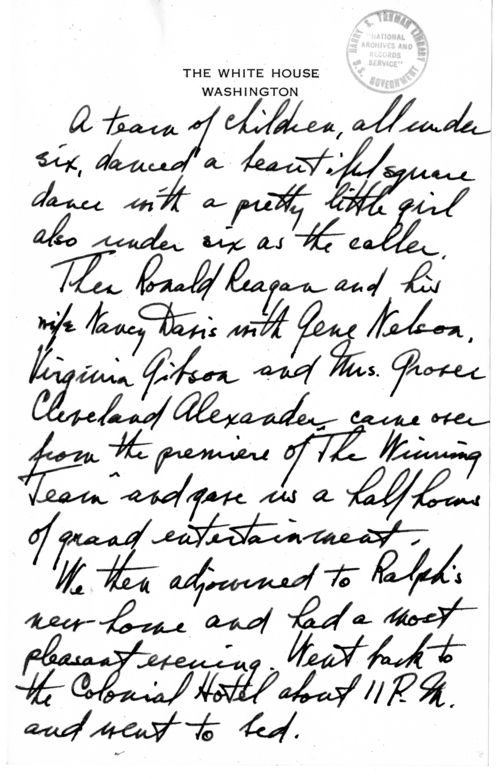 HARRY S. TRUMAN LIBRARY
"NATIONAL
ARCHIVES AND
RECORDS
SERVICE"
U.S. GOVERNMENT
THE WHITE HOUSE
WASHINGTON
A team of children, all under
six, danced a beautiful square
dance with a pretty little girl
also under six as the caller.
Then Ronald Reagan and his
wife Nancy Davis with Gene Nelson,
Virginia Gibson and Mrs. Grover
Cleveland Alexander came over
from the premiere of "The Winning
Team" and gave us a half hours
of grand entertainment.
We then adjourned to Ralph's
new home and had a most
pleasant evening. Went back to
the Colonial Hotel about 11 P.M.
and went to bed.